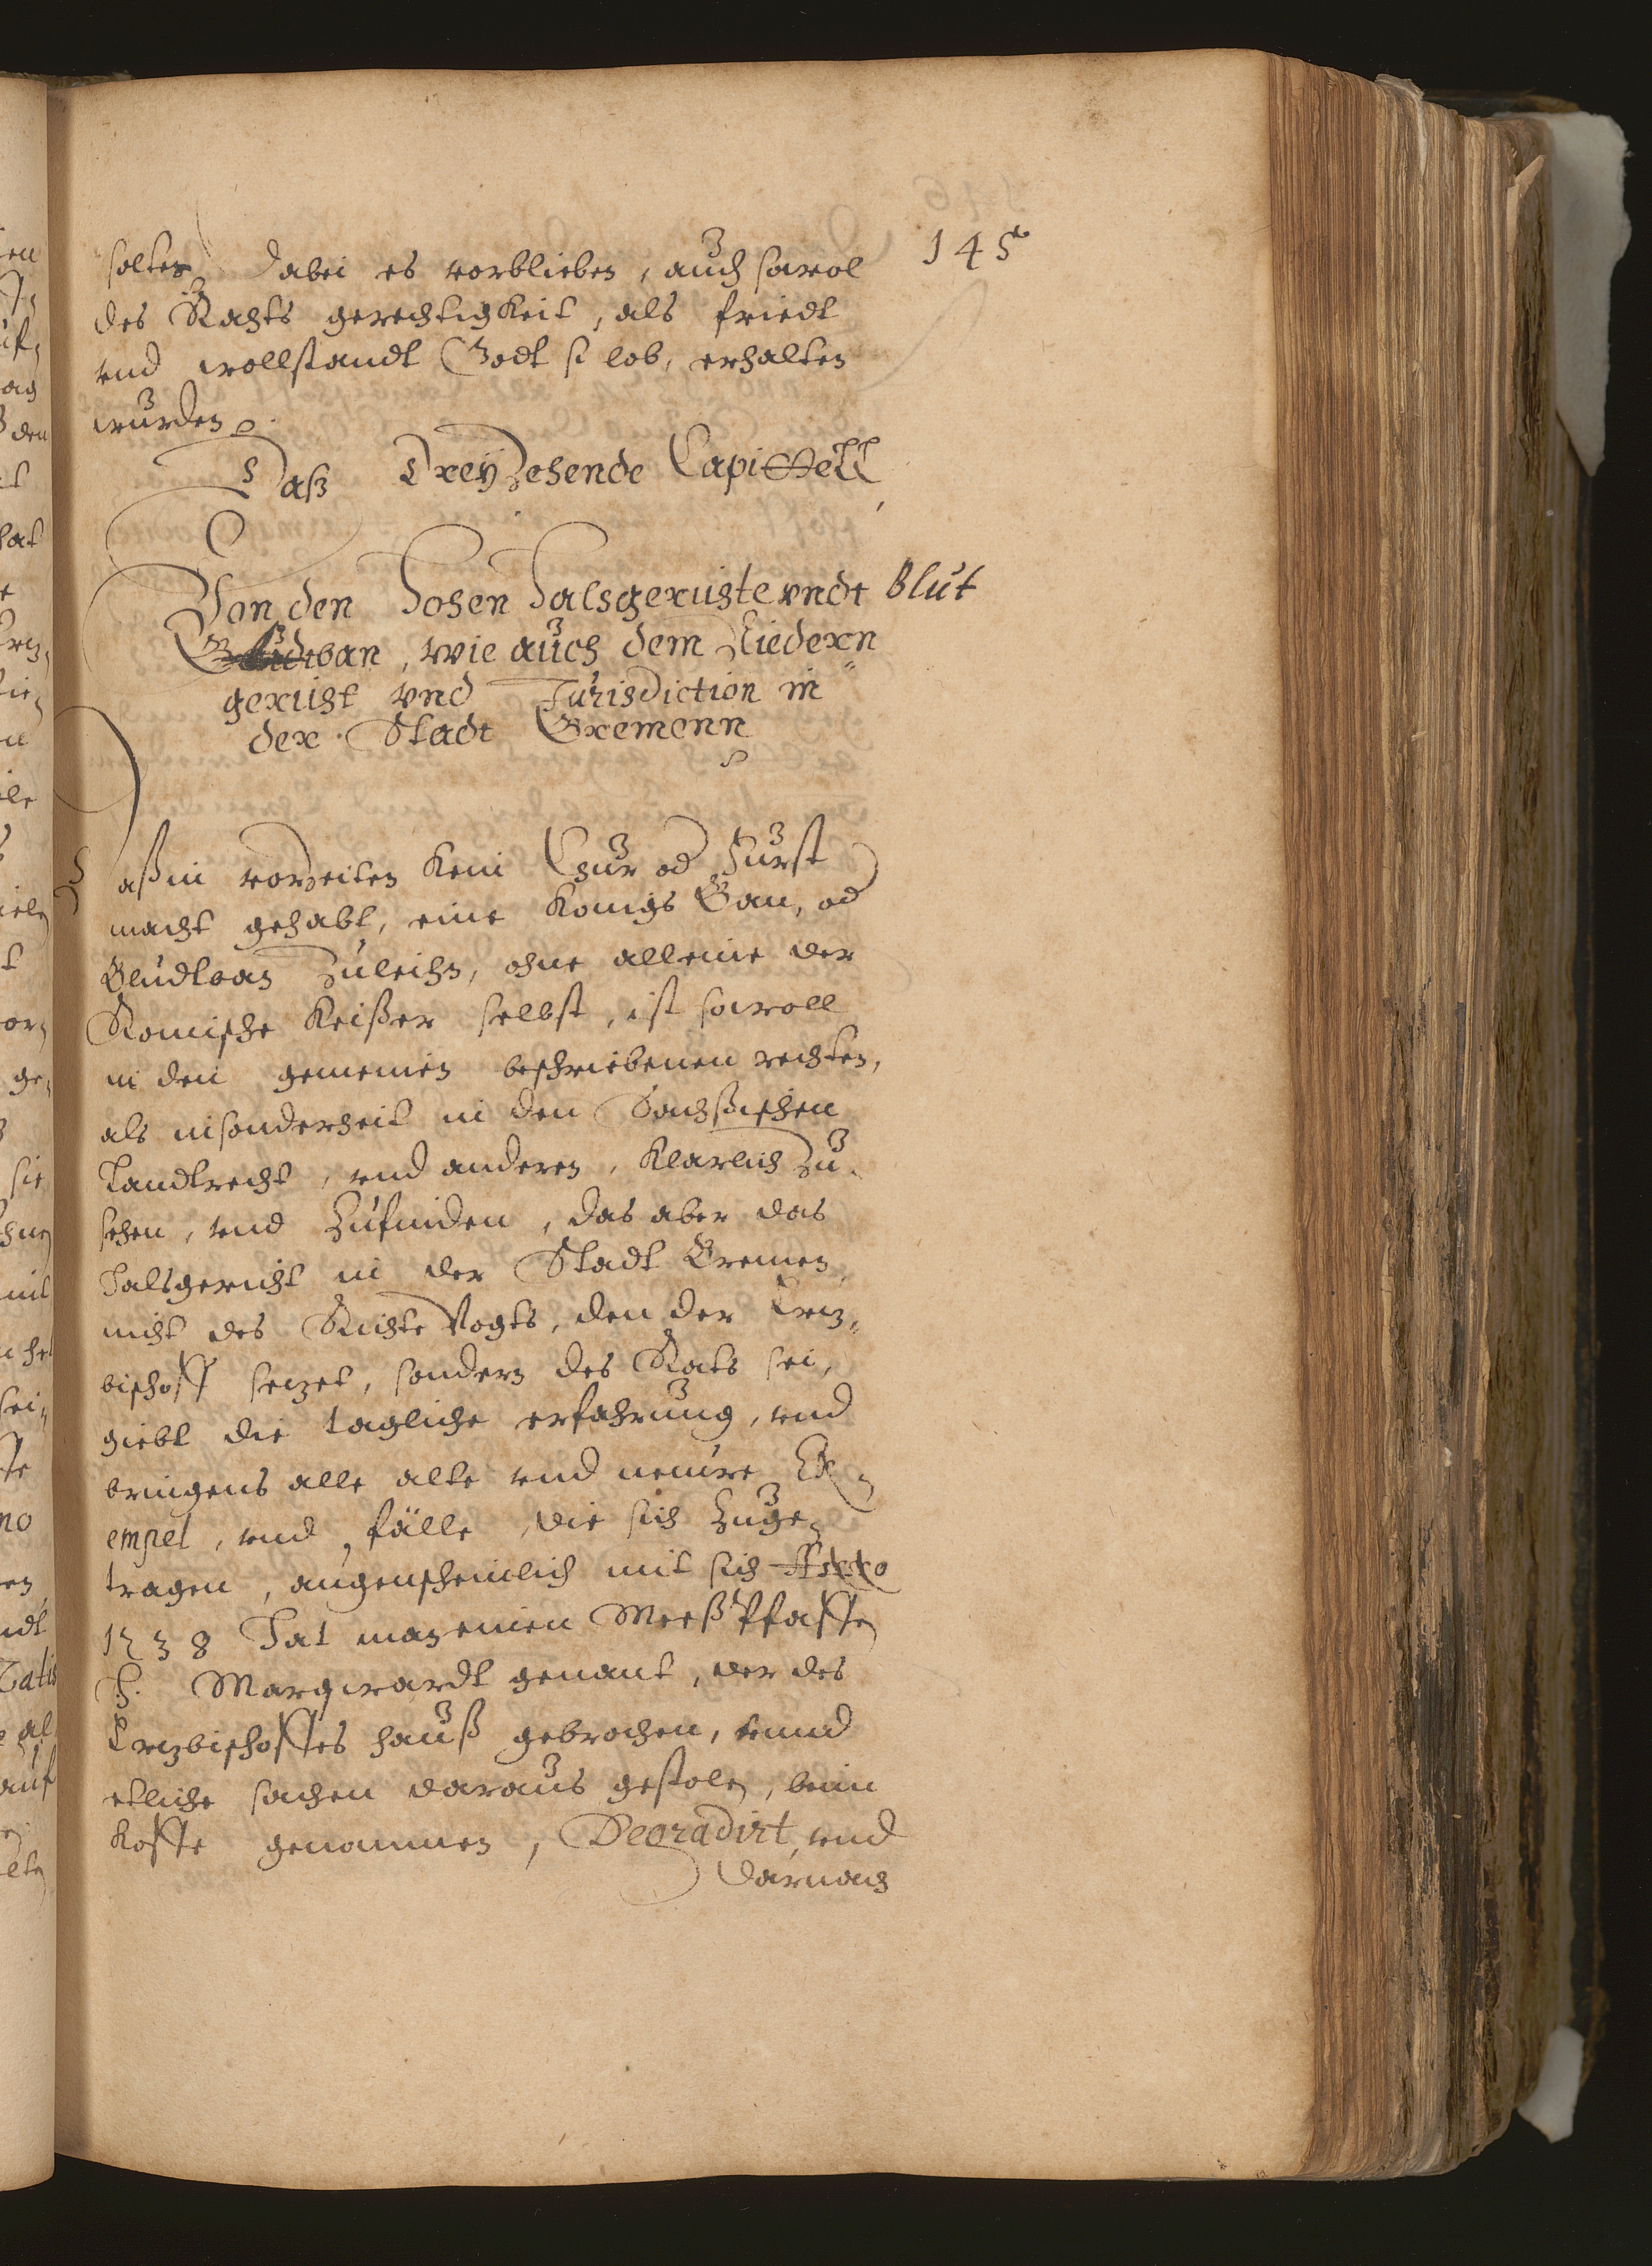 145
solten, dabei es vorblieben, auch sowol
des Rahts gerechtigkeit, als friedt
vnd wollstandt Godt si lob, erhalten
wurden.
Daß Dreyzehende Capittell
Von den Hohen Halsgerichte vndt Blut
ban, wie auch dem Niedern
gericht vnd Jurisdiction in
der Stadt Bremenn
Daß in vorzeiten kein Chur od Furst
macht gehabt, eine Konigs Ban, od
Bludtban Zuleihn, ohne alleine der
Romische Keißer selbst, ist sowoll
in den gemeinen beschriebenen rechten,
als insonderheit in den Sachssischen
Landtrecht, vnd anderen, klarlich Zu
sehen, vnd Zufinden, das aber das
Halsgericht in der Stadt Bremen
nicht des Richte Vogts, den der Ertz,,
bischoff setzet, sondern des Rats sei,
giebt die tagliche erfahrung, vnd
bringens alle alte vnd neuwe Ex,,
empel, vnd fälle, die sich Zuge,,
tragen, augenscheinlich mit sich Anno
1538 Hat man einen Meeß Pfaffen
H. Marqwardt genant, der des
Ertzbischoffes hauß gebrochen, vnnd
etliche sachen daraus gestolen, beim
Koffe genommen, Degradirt, vnd
darnach